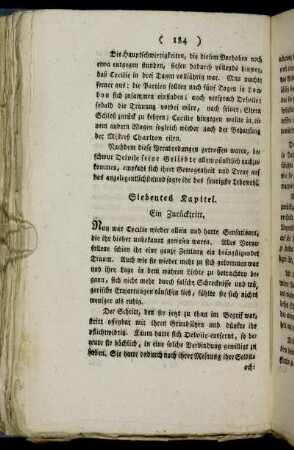 ( 184 )
Die Hauptschwierigkeiten, die diesem Vorhaben noch
etwa entgegen stunden, fielen dadurch vollends hinweg,
daß Cecilie in drei Tagen volljährig war. Man machte
ferner aus; die Partien sollten nach fünf Tagen in Lon-
don sich zusammen einfinden; auch versprach Delvile:
sobald die Trauung vorbei wäre, nach seiner Eltern
Schloß zurück zu kehren; Cecilie hingegen wollte in ei-
nem andern Wagen sogleich wieder nach der Behausung
der Mistreß Charlton eilen.
Nachdem diese Verabredungen getroffen waren, be-
schwur Delvile seine Geliebte allem pünktlich nachzu-
kommen, empfahl sich ihrer Gewogenheit und Treue auf
das angelegentlichste und sagte ihr das feurigste Lebewohl.
Siebentes Kapitel.
Ein Zurücktritt.
Nun war Cecilie wieder allein und hatte Sensationen,
die ihr bisher unbekannt gewesen waren. Alles Vorge-
fallene schien ihr eine ganze Zeitlang ein beängstigender
Traum. Auch wie sie wieder mehr zu sich gekommen war
und ihre Lage in dem wahren Lichte zu betrachten be-
gann, sich nicht mehr durch falsche Schrecknisse und trü-
gerische Erwartungen täuschen ließ, fühlte sie sich nichts
weniger als ruhig.
Der Schritt, den sie jetzt zu thun im Begrif war,
stritt offenbar mit ihren Grundsätzen und dünkte ihr
pflichtwidrig. Kaum hatte sich Delvile entfernt, so be-
reute sie höchlich, in eine solche Verbindung gewilligt zu
haben. Sie hatte dadurch nach ihrer Meinung ihre Selbst-
ach: